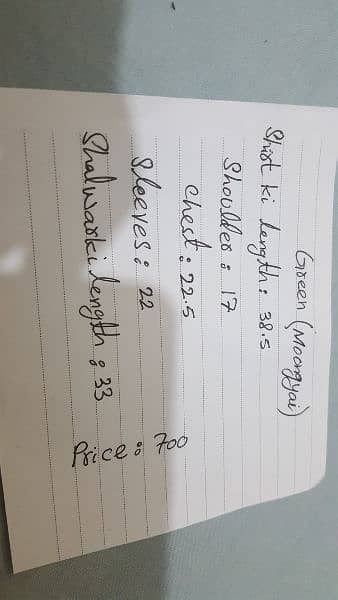 Green (Moongyai)
Shirt ki length: 38.5
Shoulder: 17
Chest: 22.5
Sleeves: 22
Shalwar ki length: 33
Price: 700